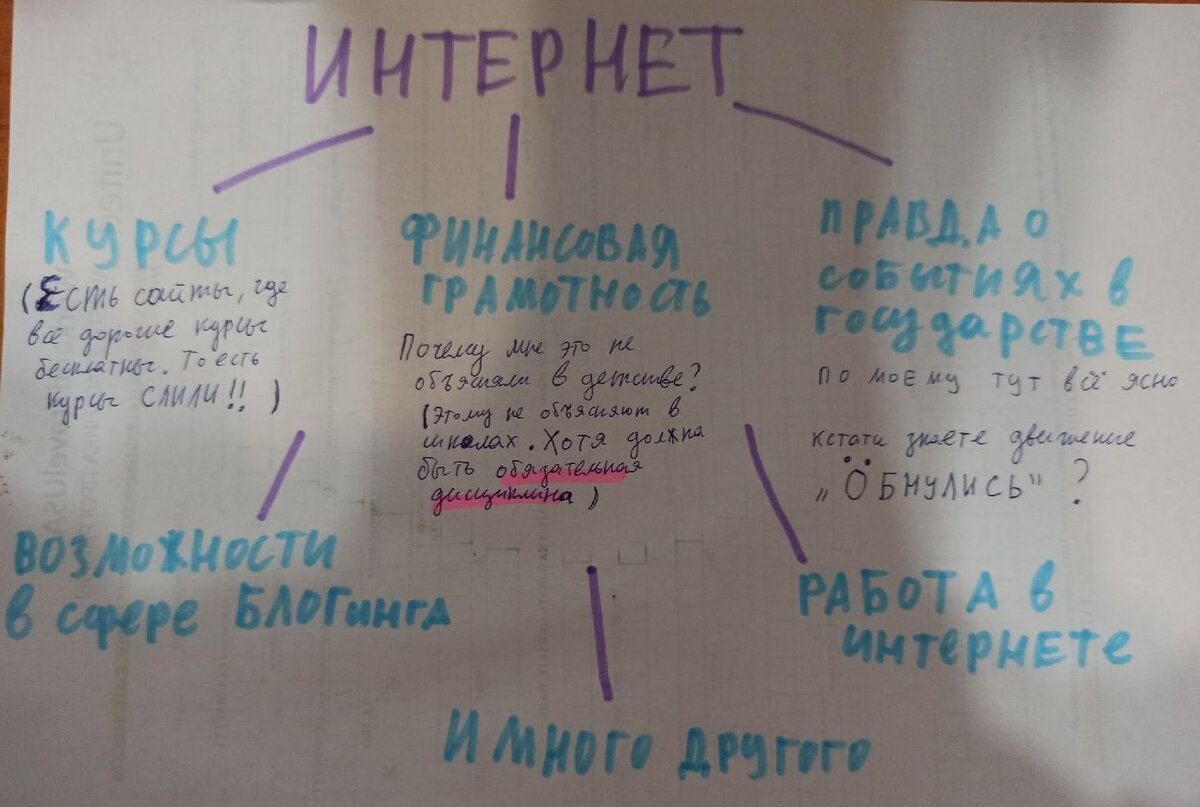 ИНТЕРНЕТ
КУРСЫ
(Есть сайты, где
всё дорогие курсы
бесплатны. То есть
курсы СЛИЛИ!! )
ФИНАНСОВАЯ
ГРАМОТНОСТЬ
Почему мне это не
объясняли в детстве?
(Этому не объясняют в
школах. Хотя должна
быть обязательная
дисциплина)
ПРАВДА О
СОБЫТИЯХ В
ГОСУДАРСТВЕ
По моему тут всё ясно
кстати знаете движение
„ÖБНУЛИСЬ" ?
ВОЗМОЖНОСТИ
в сфере БЛОГинга
РАБОТА в
интернете
И МНОГО ДРУГОГО